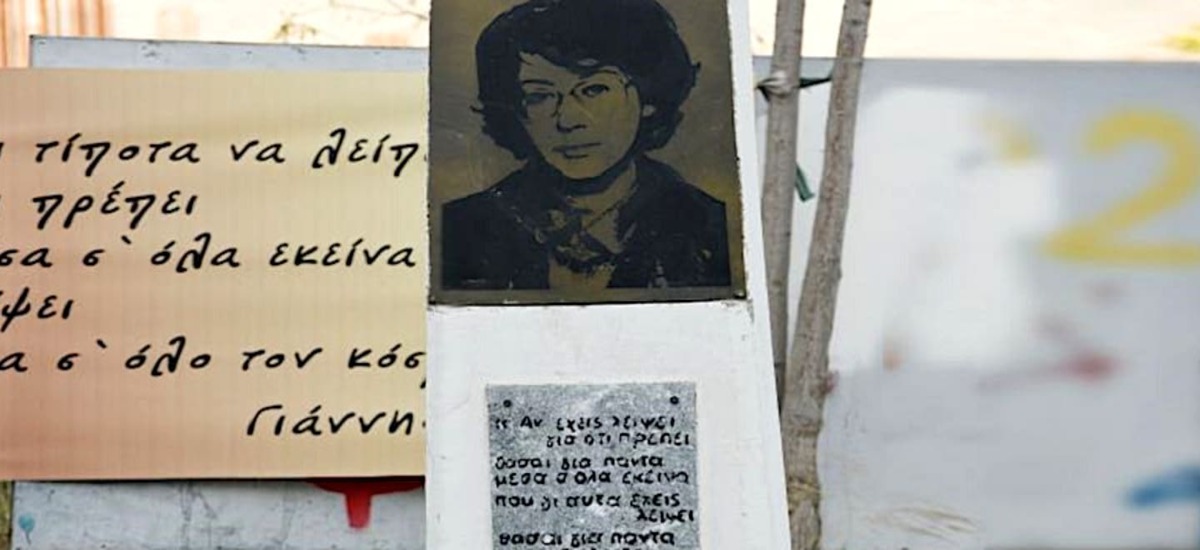 τίποτα να λείπ
πρέπει
σα σ` όλα εκείνα
ψει
α σ` όλο τον κόσ
Γιάννη
Αν εχεις λειψει
για οτι πρεπει
θασαι για παντα
μεσα σ ολα εκεινα
που γι αυτα εχεις
λειψει
θασαι για παντα
2